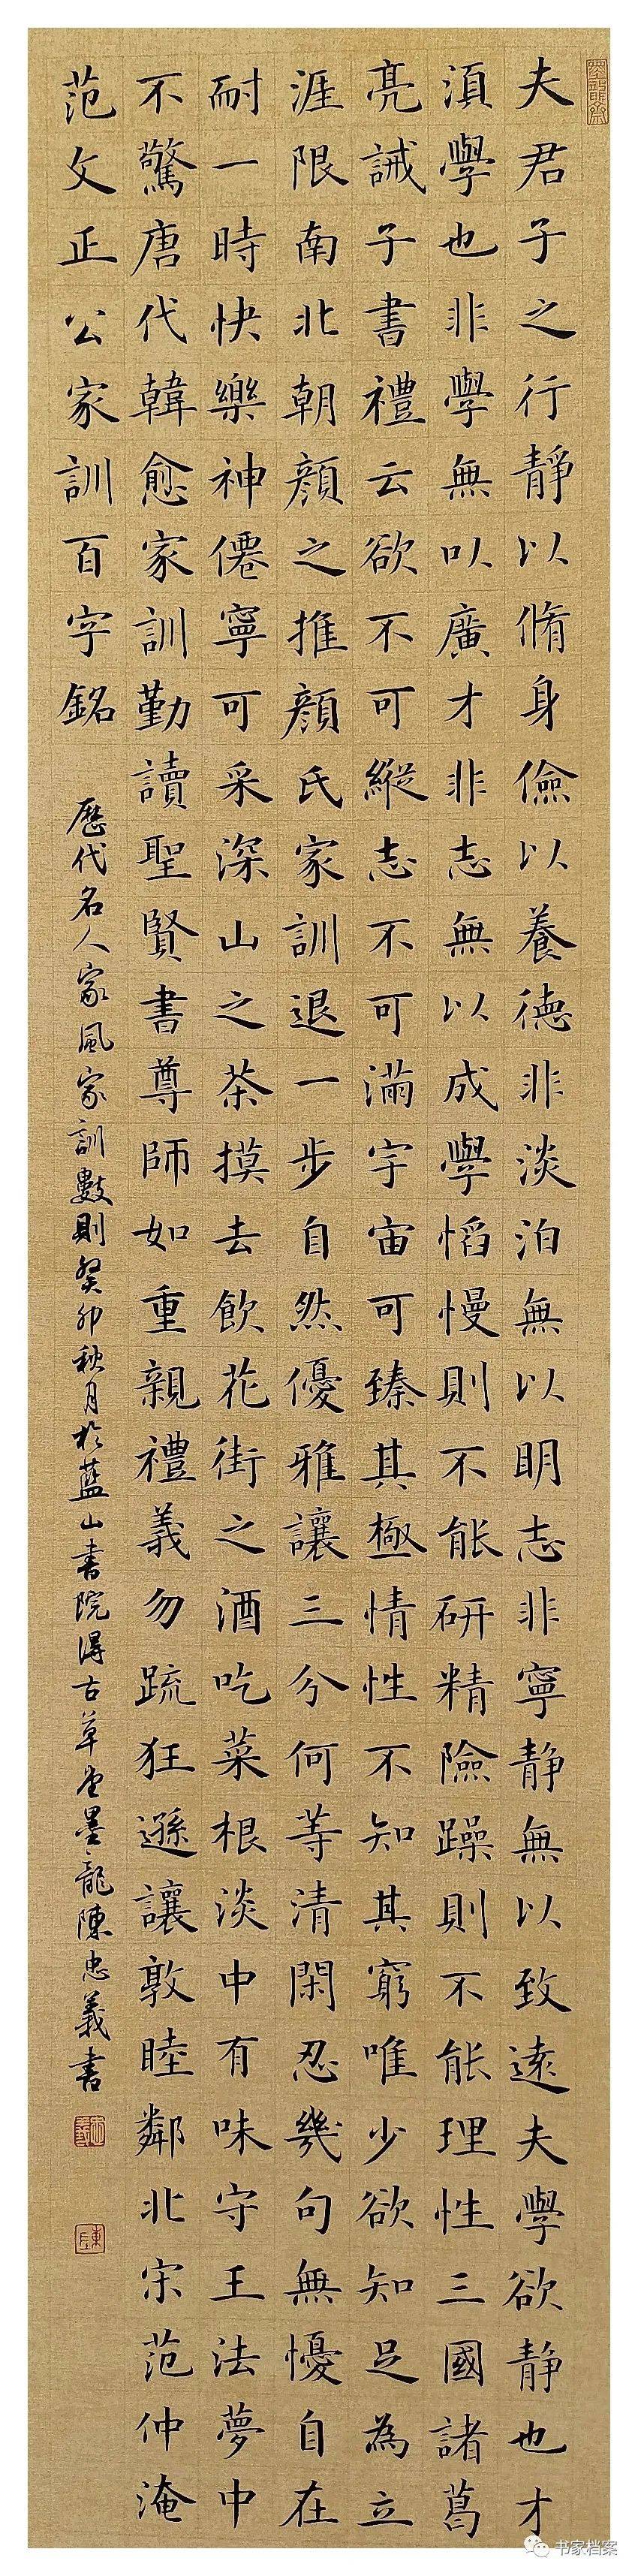 夫君子之行静以脩身儉以養德非淡泊無以明志非寧静無以致遠夫學欲静也才
湏學也非學無以廣才非志無以成學慆慢則不能研精險躁則不能理性三國諸葛
亮誡子書禮云欲不可縱志不可滿宇宙可臻其極情性不知其窮唯少欲知足為立
涯限南北朝顔之推顔氏家訓退一步自然優雅讓三分何等清閑忍幾句無憂自在
耐一時快樂神僊寧可采深山之茶摸去飲花街之酒吃菜根淡中有味守王法夢中
不驚唐代韓愈家訓勤讀聖賢書尊師如重親禮義勿疏狂遜讓敦睦鄰北宋范仲淹
范文正公家訓百字銘
歷代名人家風家訓數則癸卯秋月於藍山書院得古草堂墨龍陳忠義書
书家档案